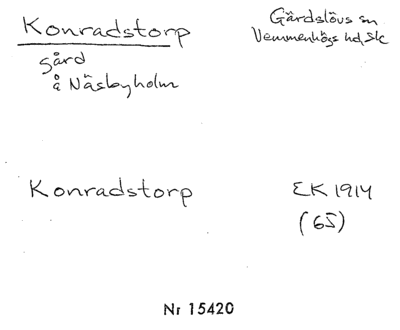 Konradstorp
Gärdslövs sn
Vemmenhögs hd, Sk
gård
å Näsbyholm
Konradstorp
EK 1914
(65)
Nr 15420